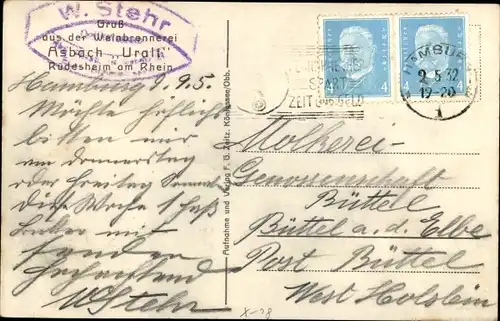 W. Stehr
Gruß
aus der Weinbrennerei
Asbach "Uralt"
Rüdesheim am Rhein
Hamburg 9.5.
Möchte höflichst
bitten mir
am Donnerstag
oder Freitag
diese Woche 1 Faß
zu
senden
Hochachtend
W Stehr
Aufnahme und Verlag F. G. Zeitz, Königssee/Obb.
4
4
ZEIT UND GELD
HAMBURG
9.5.32
19-20
1
Molkerei-
Genossenschaft
Büttel
Büttel a. d. Elbe
Post Büttel
West Holstein
X-28